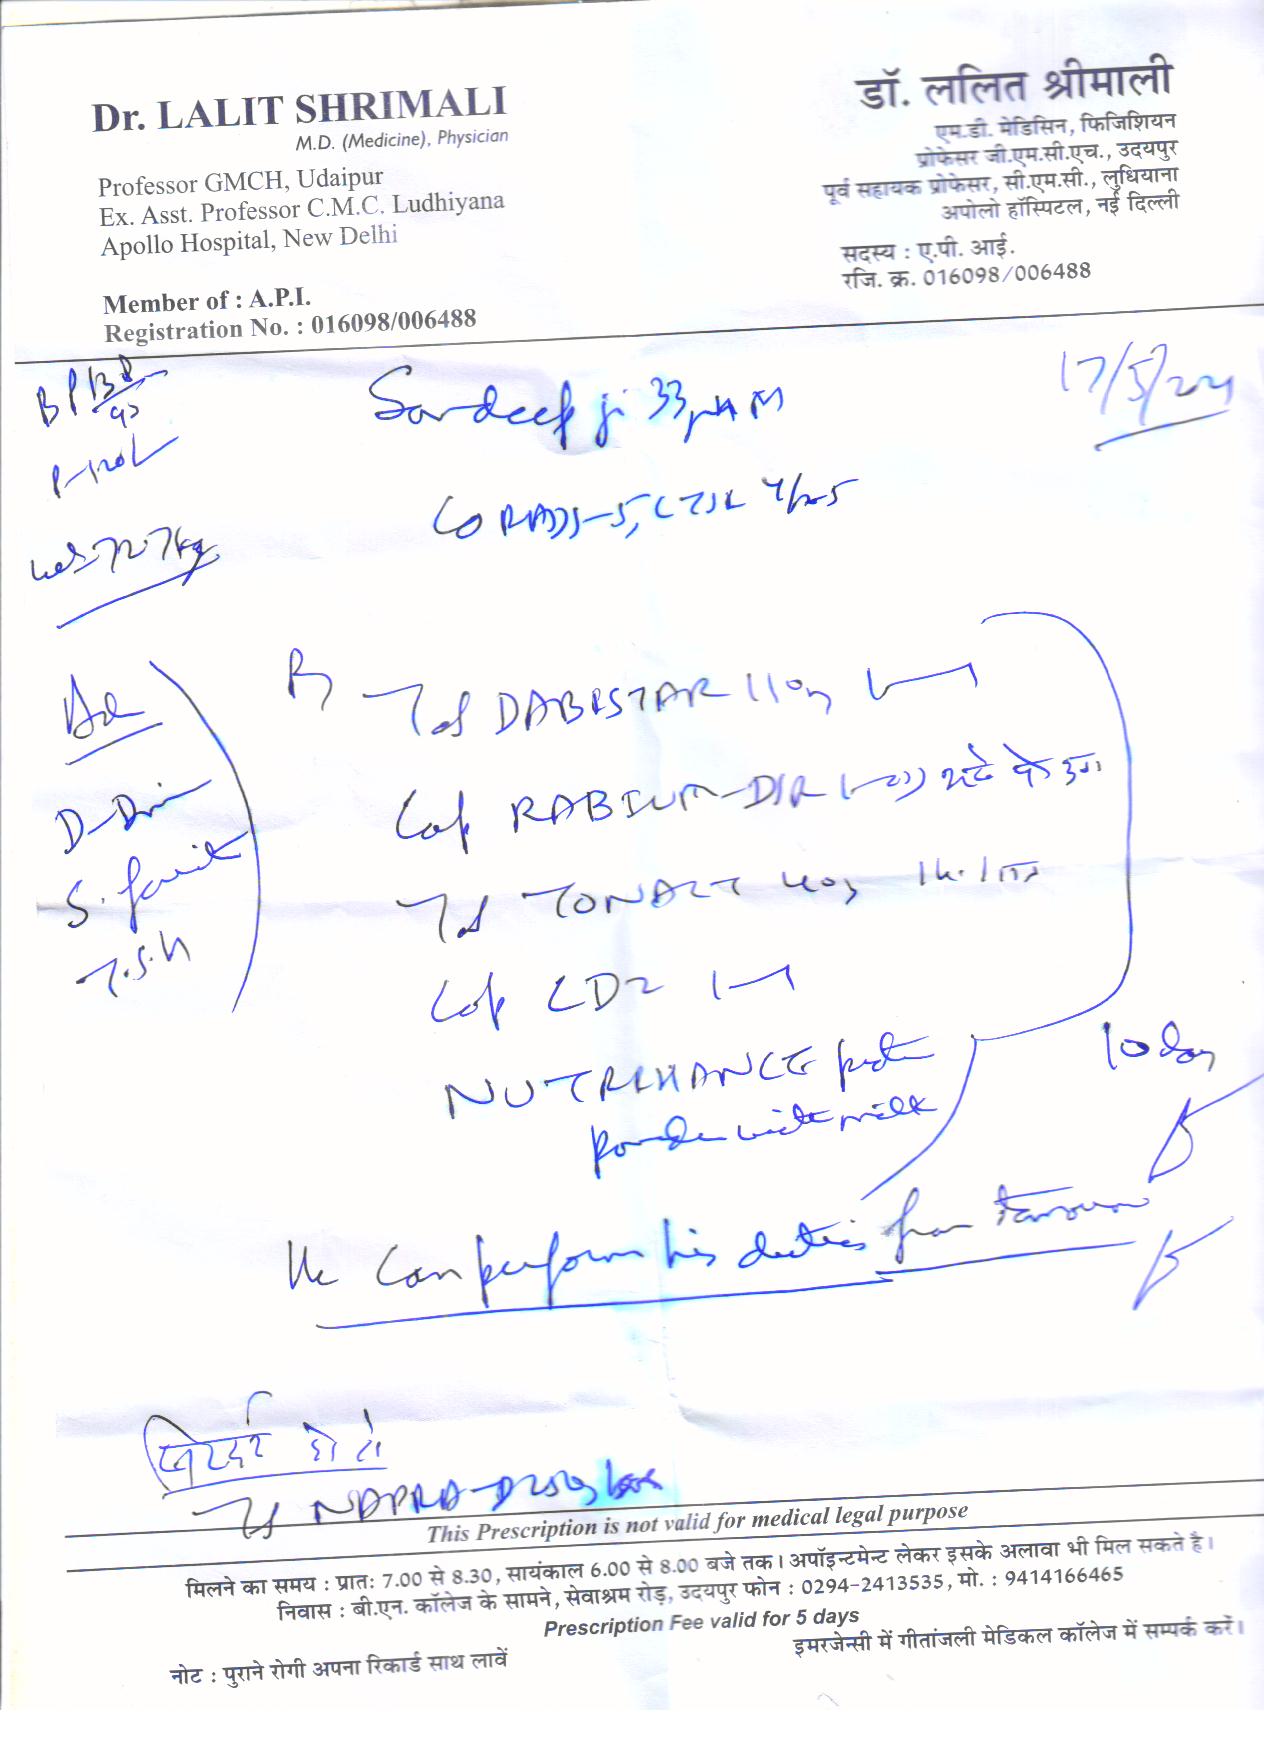 Dr. LALIT SHRIMALI
M.D. (Medicine), Physician
Professor GMCH, Udaipur
Ex. Asst. Professor C.M.C. Ludhiyana
Apollo Hospital, New Delhi
Member of : A.P.I.
Registration No. : 016098/006488
डॉ. ललित श्रीमाली
एम.डी. मेडिसिन, फिजिशियन
प्रोफेसर जी.एम.सी.एच., उदयपुर
पूर्व सहायक प्रोफेसर, सी.एम.सी., लुधियाना
अपोलो हॉस्पिटल, नई दिल्ली
सदस्य : ए.पी. आई.
रजि. क्र. 016098/006488
17/5/2021
BP 138/90
Sandeep ji 33 M
CORADS-5, CTSI 4/25
72.7kg
Adv
D-Dim
S. ferrit
T.S.H
Tab DABISTAR 110mg
Cap RABIUM-DSR
Tab TONACT 40mg
Cap CDZ 1-1
NUTRIHANCE protein
powder with milk
10 day
He can perform his duties from tomorrow
Tab NAPRA-D 250mg
This Prescription is not valid for medical legal purpose
मिलने का समय : प्रातः 7.00 से 8.30, सायंकाल 6.00 से 8.00 बजे तक। अपॉइन्टमेन्ट लेकर इसके अलावा भी मिल सकते है।
निवास : बी.एन. कॉलेज के सामने, सेवाश्रम रोड़, उदयपुर फोन : 0294-2413535, मो. : 9414166465
Prescription Fee valid for 5 days
इमरजेन्सी में गीतांजली मेडिकल कॉलेज में सम्पर्क करें।
नोट : पुराने रोगी अपना रिकार्ड साथ लावें